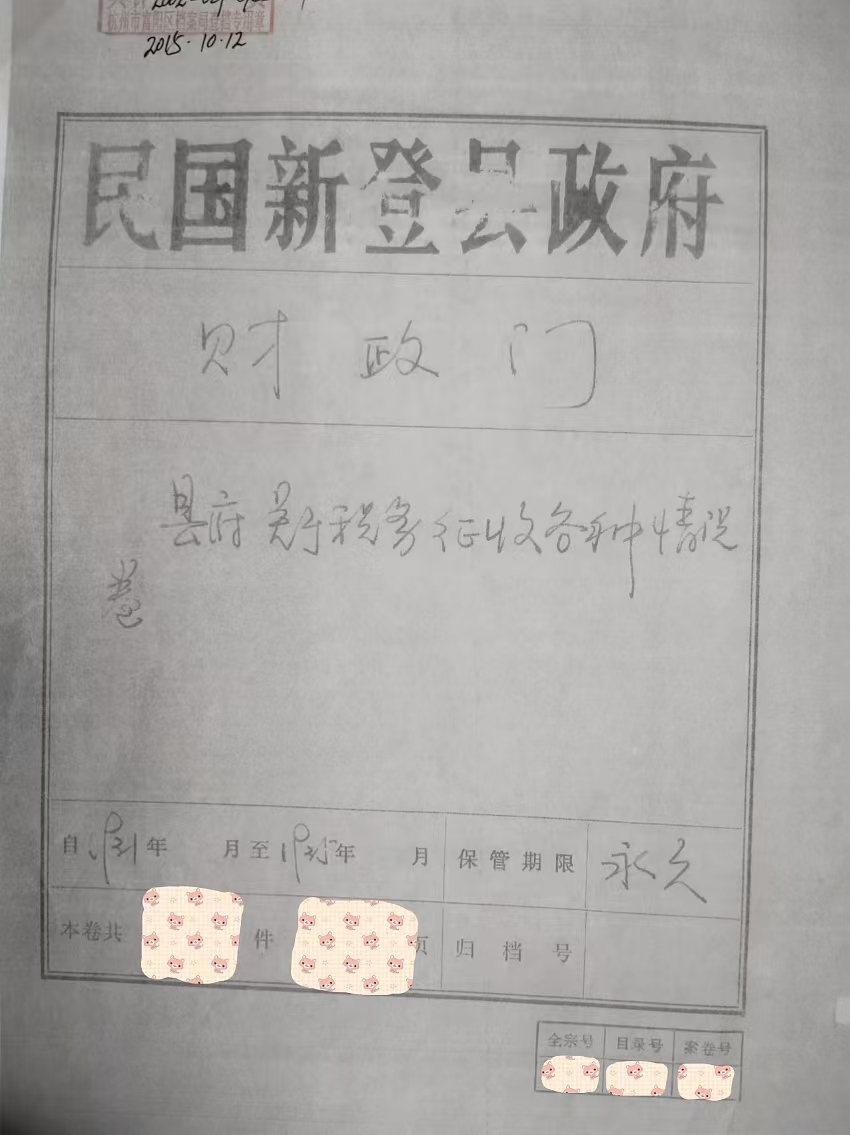 杭州市富阳区档案局查档专用章
2015.10.12
民国新登县政府
财政门
县府关于税务征收各种情况
卷
自1931年 月至1935年 月 保管期限 永久
本卷共 件 页 归档号
全宗号 目录号 案卷号